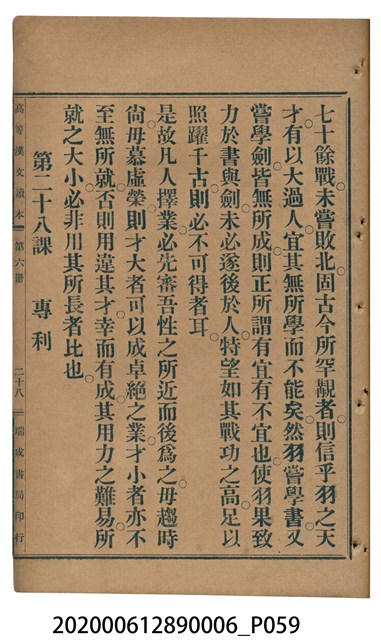 七十餘戰。未嘗敗北。固古今所罕覯者。則信乎羽之天
才有以大過人。宜其無所學而不能矣。然羽嘗學書。又
嘗學劍。皆無所成。則正所謂有宜有不宜也。使羽果致
力於書與劍。未必遂後於人。特望如其戰功之高。足以
照躍千古。則必不可得者耳。
是故凡人擇業。必先審吾性之所近。而後爲之。毋趨時
尙。毋慕虛榮。則才大者可以成卓絕之業。才小者亦不
至無所就。否則用違其才。幸而有成。其用力之難易。所
就之大小。必非用其所長者比也。
第二十八課 專利
高等漢文讀本 第六冊 二十八 瑞成書局印行
202000612890006_P059